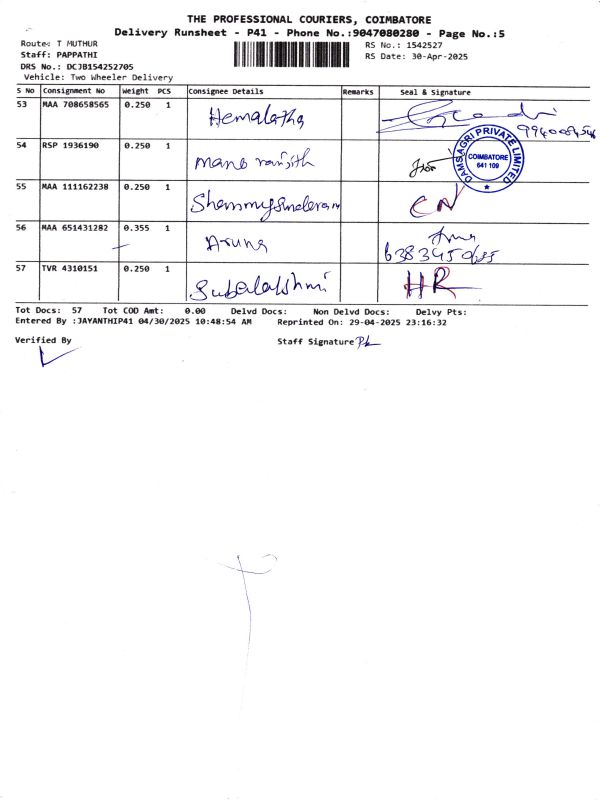 THE PROFESSIONAL COURIERS, COIMBATORE
Delivery Runsheet - P41 - Phone No.:9047080280 - Page No.:5
Route: T MUTHUR
RS No.: 1542527
Staff: PAPPATHI
RS Date: 30-Apr-2025
DRS No.: DCJB154252705
Vehicle: Two Wheeler Delivery
S No Consignment No Weight PCS Consignee Details Remarks Seal & Signature
53 MAA 708658565 0.250 1 Hemalatha
54 RSP 1936190 0.250 1 mano ranjith
DAMS AGRI PRIVATE LIMITED
COIMBATORE
641 109
55 MAA 111162238 0.250 1 Shammysundaram CN
56 MAA 651431282 0.355 1 Aruna
57 TVR 4310151 0.250 1 Subalakshmi HR
Tot Docs: 57 Tot COD Amt: 0.00 Delvd Docs: Non Delvd Docs: Delvy Pts:
Entered By :JAYANTHIP41 04/30/2025 10:48:54 AM Reprinted On: 29-04-2025 23:16:32
Verified By Staff Signature